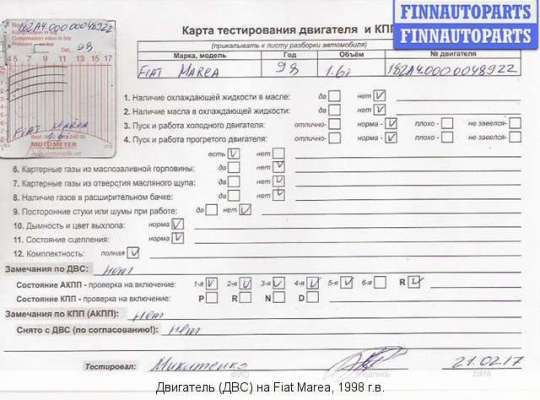 FINNAUTOPARTS
FINNAUTOPARTS
Карта тестирования двигателя и КПП
(прикалывать к листу разборки автомобиля)
Марка, модель Год Объём № двигателя
FIAT MAREA 98 1.6i 182A4.0000048922
182A4.0000048922
98
FIAT MAREA
MOTOMETER
1. Наличие охлаждающей жидкости в масле: да нет V
2. Наличие масла в охлаждающей жидкости: да нет V
3. Пуск и работа холодного двигателя: отлично- норма - V плохо - не завелся-
4. Пуск и работа прогретого двигателя: отлично- норма - V плохо - не завелся-
есть V нет
6. Картерные газы из маслозаливной горловины: да нет V
7. Картерные газы из отверстия масляного щупа: да нет V
8. Наличие газов в расширительном бачке: да нет V
9. Посторонние стуки или шумы при работе: да нет V
10. Дымность и цвет выхлопа: норма V
11. Состояние сцепления: норма V
12. Комплектность: полная V
Замечания по ДВС: нет
Состояние АКПП - проверка на включение: 1-я V 2-я V 3-я V 4-я V 5-я V 6-я R V
Состояние КПП - проверка на включение: P R N D
Замечания по КПП (АКПП): нет
Снято с ДВС (по согласованию!): нет
Тестировал: Микитенко 21.02.17
ФИО дата
Двигатель (ДВС) на Fiat Marea, 1998 г.в.